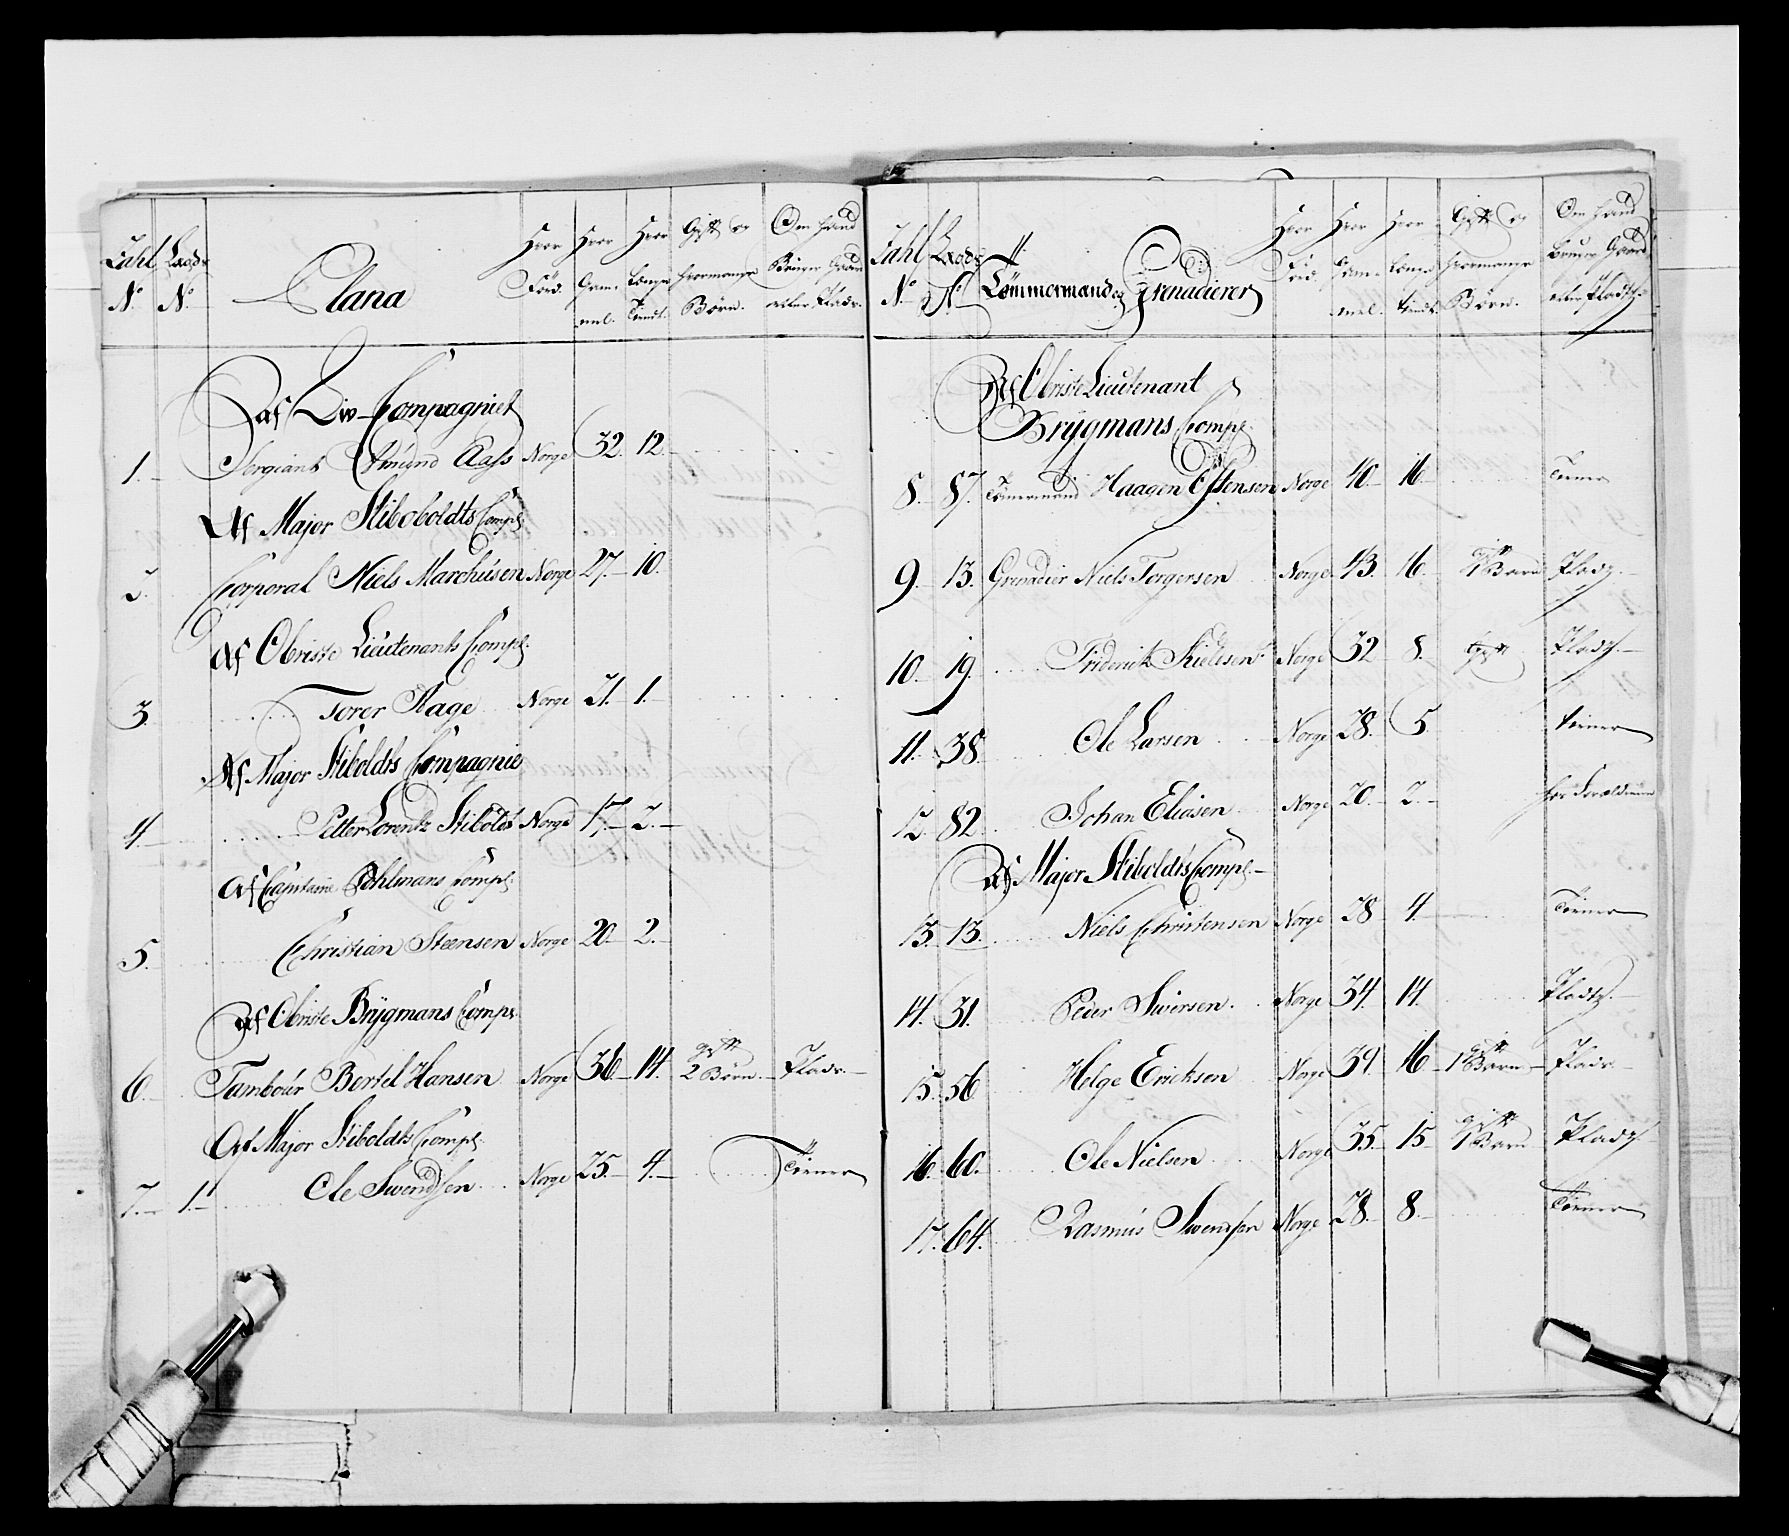 Tahl No | Lægds No | Etana | Hvor Född. | Hvor Gam- mel. | Hvor Længe Tient. | Gift og Hvormange Börn. | Om Hand Bruger Gaard eller Plads.
Af Liv-Compagniet
1. Sergiant Amund Aass Norge 32. 12.
Af Major Stiboldts Comp:
2. Corporal Niels Marchusen Norge 27. 10.
Af Obriste Lieutenants Comp:
3. Torer Hage Norge 21. 1.
Af Major Stiboldts Compagnie
4. Petter Lorentz Stiboldt Norge 17. 2.
Af Capitaine Pohlmans Comp:
5. Christian Steensen Norge 20. 2.
Af Obriste Brÿgmans Comp:
6. Tambour Bertel Hansen Norge 36. 14. gift 2 Börn. Plads.
Af Major Stiboldts Comp:
7. 1. Ole Swendsen Norge 25. 4. Tiener
Tahl No | Lægds No | Tömmermænd og Grenadierer | Hvor Född. | Hvor Gam- mel. | Hvor Længe Tient. | Gift og Hvormange Börn. | Om Hand bruger Gaard eller Plads.
Af Obriste Lieutenant
Brÿgmans Comp:
8. 87. Tömermand Haagen Estensen Norge 40. 16. Tiener
9. 13. Grenadier Niels Torgersen Norge 43. 16. gift 1 Barn Plads.
10. 19. Friderik Kielsen Norge 32 8. gift Plads.
11. 38. Ole Larsen Norge 28. 5. tiener
12. 82. Johan Eliasen Norge 20. 2. hos Forældrene
Af Major Stiboldts Comp:
13. 13. Niels Christensen Norge 28 4. Tiener
14. 31. Peder Swersen Norge 34. 14. Plads.
15. 56 Helge Ericksen Norge 39. 16 gift 1 Barn Plads.
16. 60. Ole Nielsen Norge 35. 15 gift 1 Barn Plads.
17. 64. Rasmus Swendsen Norge 28. 8. Tiener